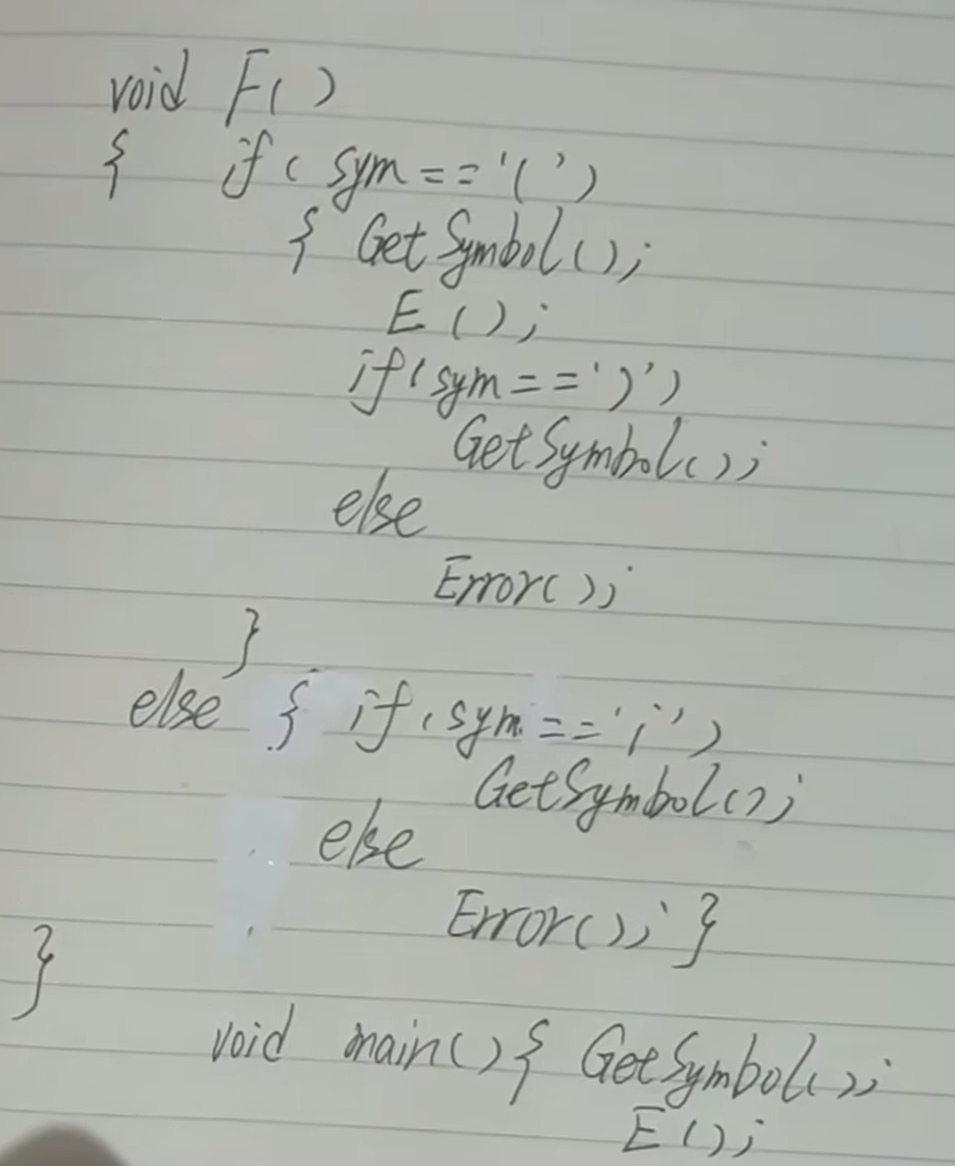 void F()
{ if( sym=='(')
{ GetSymbol();
E();
if(sym==')')
GetSymbol();
else
Error();
}
else { if(sym=='i')
GetSymbol();
else
Error();}
}
void main(){ GetSymbol();
E();